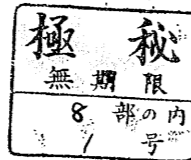 極秘
無期限
8部の内
1号